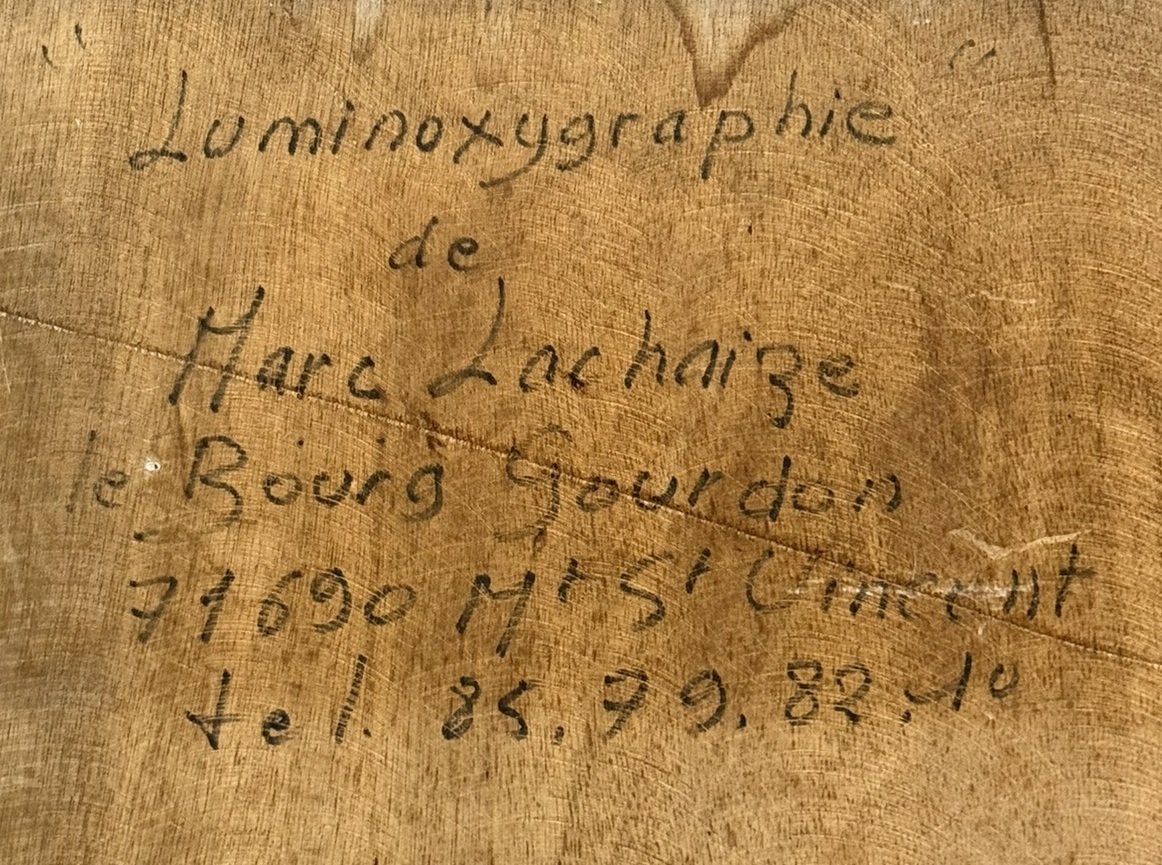 " Luminoxygraphie "
de
Marc Lachaize
le Bourg Gourdon
71690 Mt St Vincent
tel. 85.79.82.10